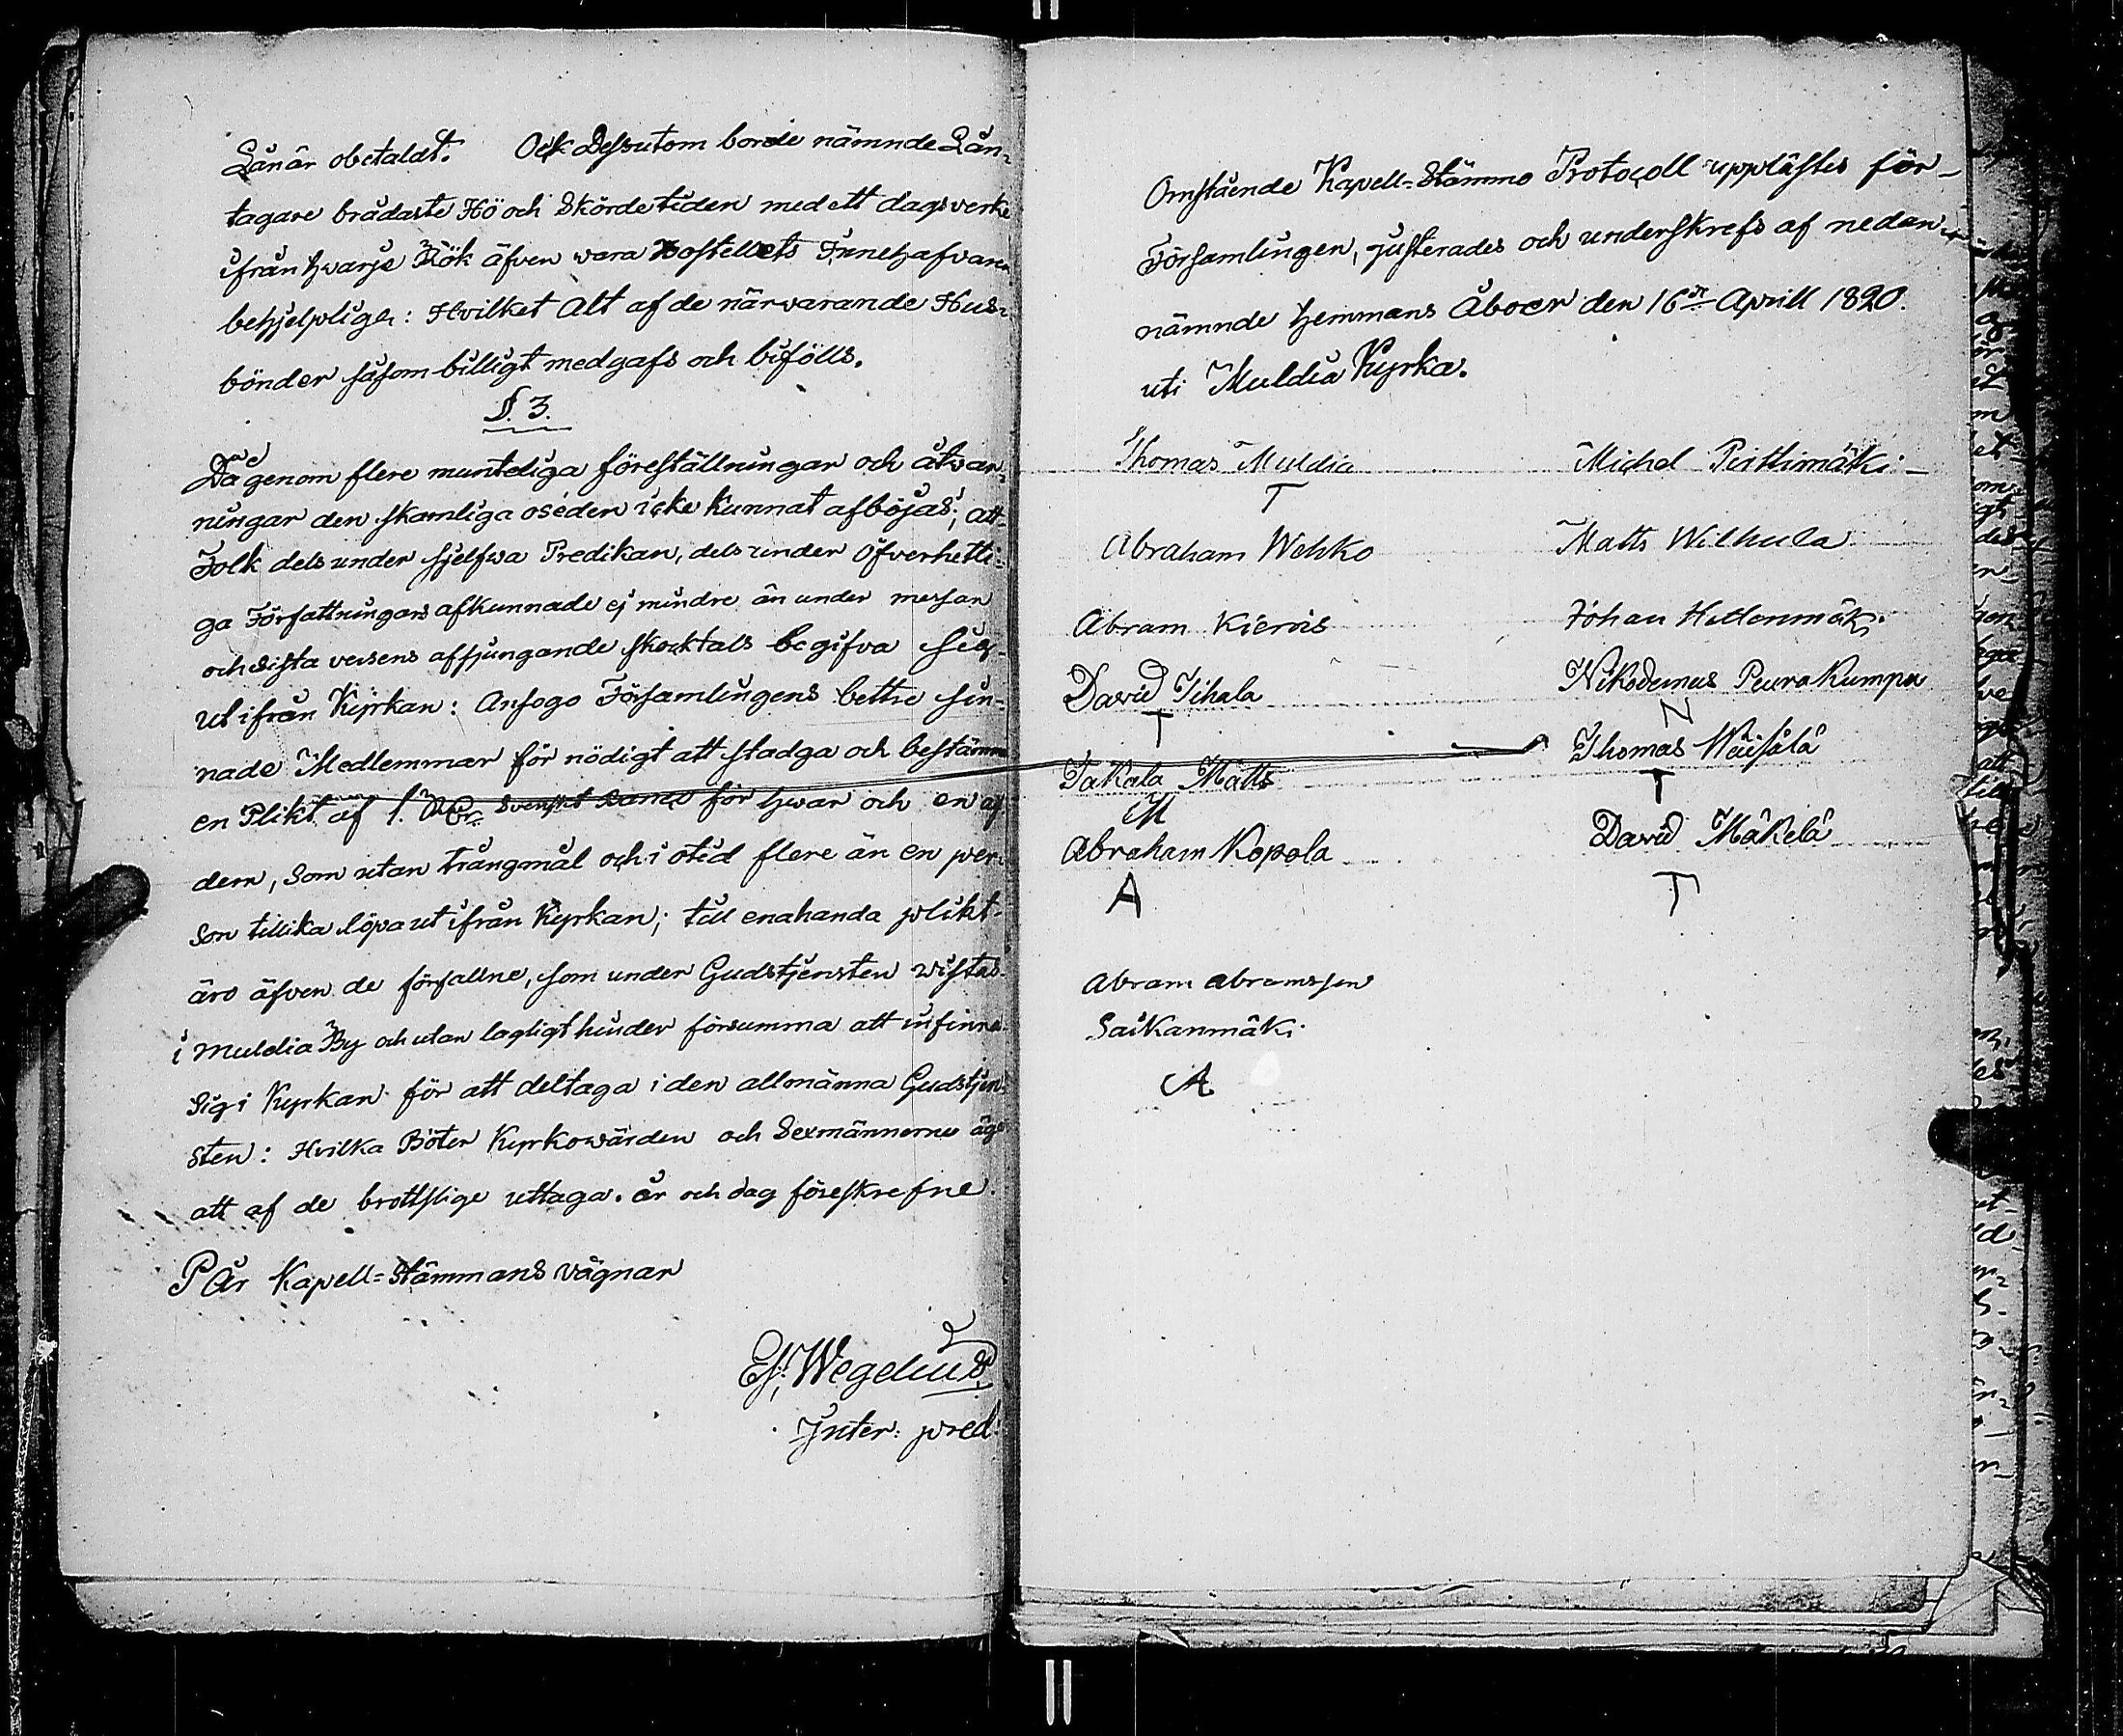 Lån är obetaldt. Ock Dessutom borde nämnde Lån-
tagare brådaste Hö och Skörde tiden med ett dagsverke
ifrån hvarje Rök äfven wara Bostellets Innehafvare
behjelplige: Hvilket Alt af de närwarande Hus-
bönder såsom billigt medgafs och bifölls.
§. 3.
Då genom flere munteliga föreställningar och åtvar-
ningar den skamliga oseden icke kunnat afböjas; att
Folk dels under sjelfwa Predikan, dels under Öfverhetli-
ga Författningars afkunnade ej mindre än under messan
och sista versens afsjungande skocktals begifva sig
ut ifrån Kyrkan: Ansågo Församlingens bettre sin-
nade Medlemmar för nödigt att stadga och bestämma
en Plikt af 1. Rdr. Svenskt Banco för hwar och en af
dem, Som utan trångmål och i otid flere än en per-
son tillika löpa ut ifrån Kyrkan; till enahanda plikt
äro äfven de förfallne, som under Gudstjensten vistas
i Muldia By och utan lagligt hinder försumma att infinna
Sig i Kyrkan för att deltaga i den allmänna Gudstjen-
sten: Hvilka Böter Kyrkowärden och Sexmännerne äga
att af de brottslige uttaga. År och dag föreskrefne.
På Kapell-Stämmans vägnar
Es. Wegelius
Inter: pred:
Omstående Kapell-Stämmo Protocoll upplästes för
Församlingen, justerades och underskrefs af nedan-
nämnde Hemmans Åboer den 16de Aprill 1820.
uti Muldia Kyrka.
Thomas Muldia
T
Abraham Wehko
Abram Kiervis
David Tihala
T
Takala Matts
M
Abraham Kopola
A
Abram Abramsson
Saikanmäki
A
Michel Perttimäki
Matts Wilhula
Johan Hettenmäki
Nikodemus Peurakumpu
N
Thomas Wäisälä
T
David Mäkelä
T